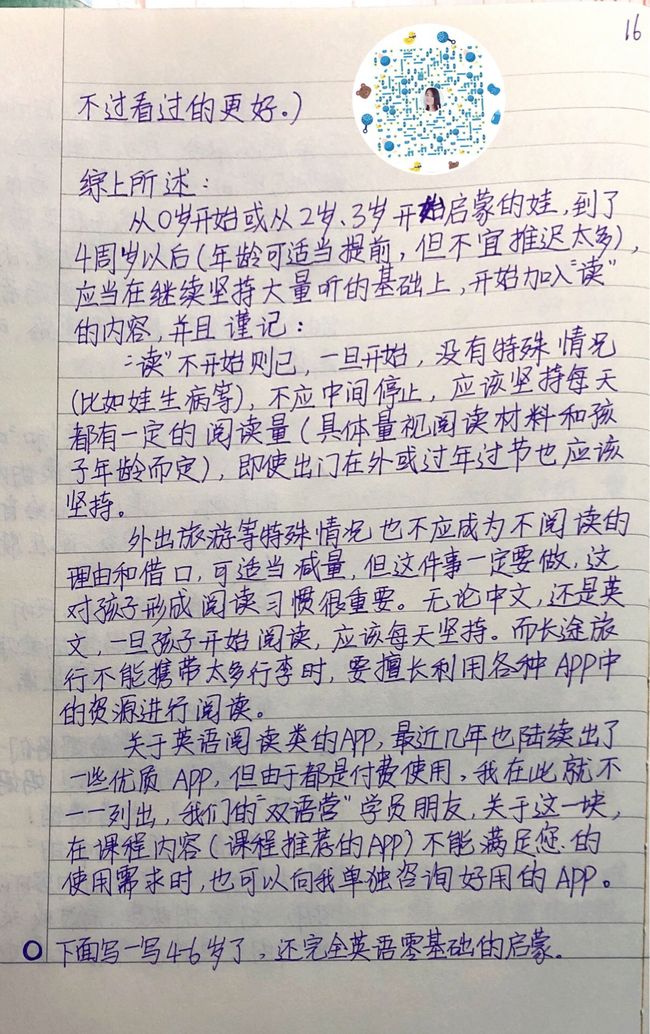 16
不过看过的更好。)
综上所述:
从0岁开始或从2岁、3岁开始启蒙的娃,到了
4周岁以后(年龄可适当提前,但不宜推迟太多),
应当在继续坚持大量听的基础上,开始加入“读”
的内容,并且谨记:
“读”不开始则已,一旦开始,没有特殊情况
(比如娃生病等),不应中间停止,应该坚持每天
都有一定的阅读量(具体量视阅读材料和孩
子年龄而定),即使出门在外或过年过节也应该
坚持。
外出旅游等特殊情况也不应成为不阅读的
理由和借口,可适当减量,但这件事一定要做,这
对孩子形成阅读习惯很重要。无论中文,还是英
文,一旦孩子开始阅读,应该每天坚持。而长途旅
行不能携带太多行李时,要擅长利用各种APP中
的资源进行阅读。
关于英语阅读类的APP,最近几年也陆续出了
一些优质APP,但由于都是付费使用,我在此就不
一一列出,我们的“双语营”学员朋友,关于这一块,
在课程内容(课程推荐的APP)不能满足您的
使用需求时,也可以向我单独咨询好用的APP。
下面写一写4-6岁了,还完全英语零基础的启蒙。